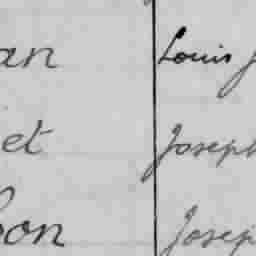 an Louis J
et Joseph
on Josep